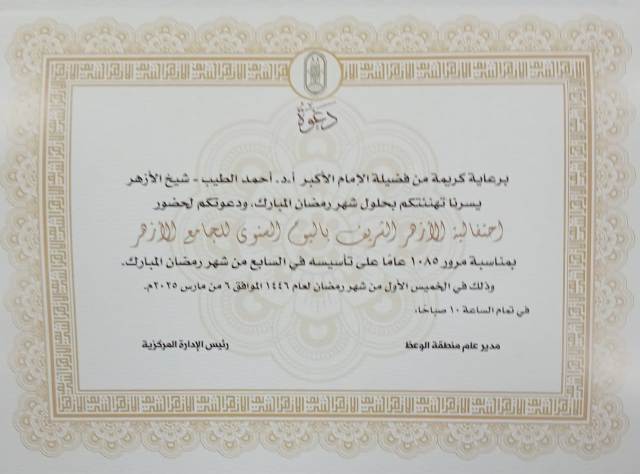 دعوة
برعاية كريمة من فضيلة الإمام الأكبر أ.د. أحمد الطيب - شيخ الأزهر
يسرنا تهنئتكم بحلول شهر رمضان المبارك. ودعوتكم لحضور
احتفالية الأزهر الشريف باليوم السنوي للجامع الأزهر
بمناسبة مرور ١٠٨٥ عامًا على تأسيسه في السابع من شهر رمضان المبارك.
وذلك في الخميس الأول من شهر رمضان لعام ١٤٤٦ الموافق ٦ من مارس ٢٠٢٥م.
في تمام الساعة ١٠ صباحًا.
مدير عام منطقة الوعظ
رئيس الإدارة المركزية